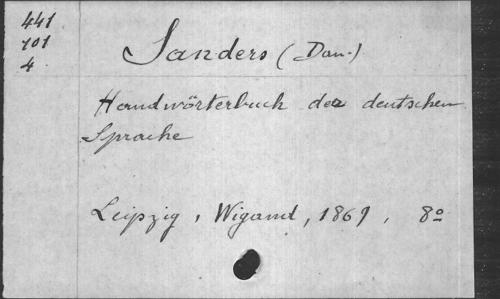 441
101
4
Sanders (Dan.)
Handwörterbuch der deutschen
Sprache
Leipzig, Wigand, 1869, 8º